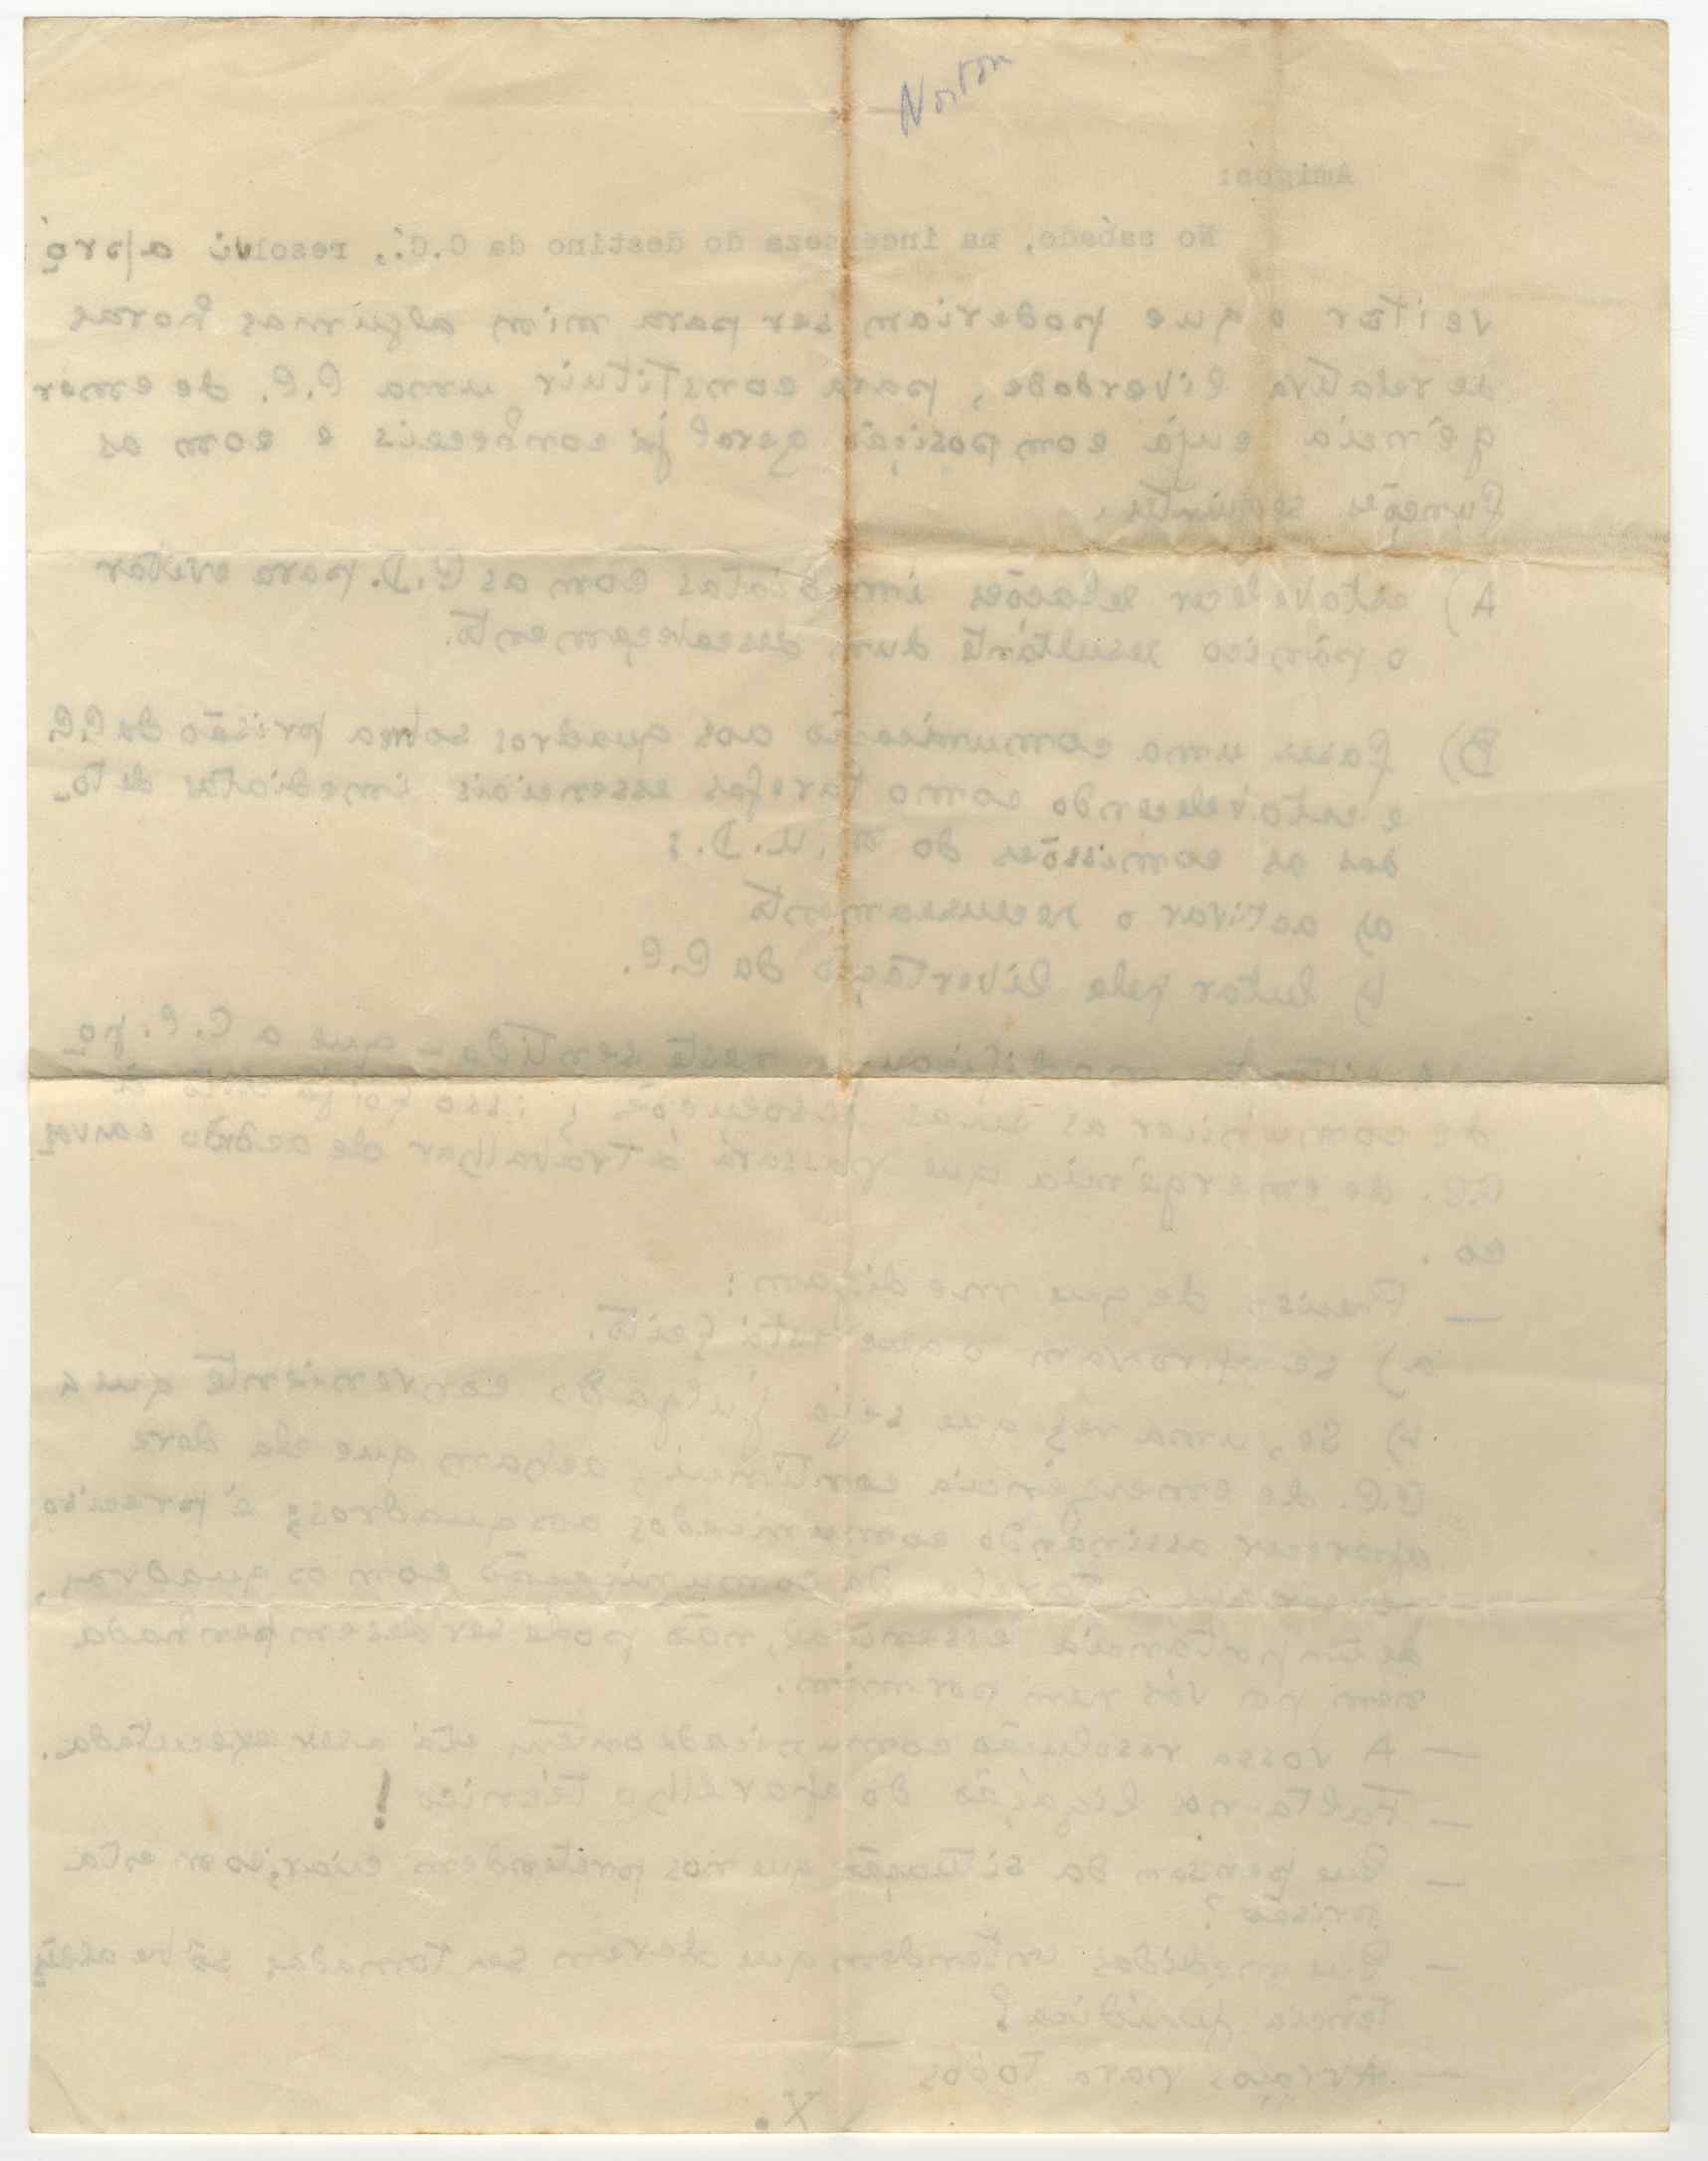 Norton
Amigos:
No sabado, na incerteza do destino da C.C., resolvi apro
veitar o que poderiam ser para mim algumas horas
de relativa liberdade, para constituir uma C.C. de emer
gência cuja composição geral já conheceis e com as
funções seguintes:
A) estabelecer relações imediatas com as C.D. para evitar
o pânico resultante dum descabeçamento.
B) fazer uma comunicação aos quadros sobre a prisão da C.C.
e estabelecendo como tarefas essenciais imediatas de to-
das as comissões do M.U.D.:
a) activar o recenseamento
b) lutar pela libertação da C.C.
neste sentido - que a C.C. po
de comunicar as suas resoluções; isso foi já dito à
C.C. de emergência que passará a trabalhar de acôrdo convos
co.
— Preciso de que me digam:
a) se aprovam o que está feito.
b) Se, uma vez que seja julgado conveniente que a
C.C. de emergência continui, acham que ela deve
aparecer assinando comunicados aos quadros; é preciso
a tarefa da comunicação com os quadros,
de importancia essencial, não pode ser desempenhada
nem por vós nem por mim.
— A vossa resolução comunicada ontem está a ser executada.
— Falta-nos ligação do aparelho técnico!
— Que pensam da situação que nos pretendem criar, com esta
prisão?
— Que medidas entendem que devem ser tomadas sôbre assis
tência jurídica?
— Abraços para todos
X.